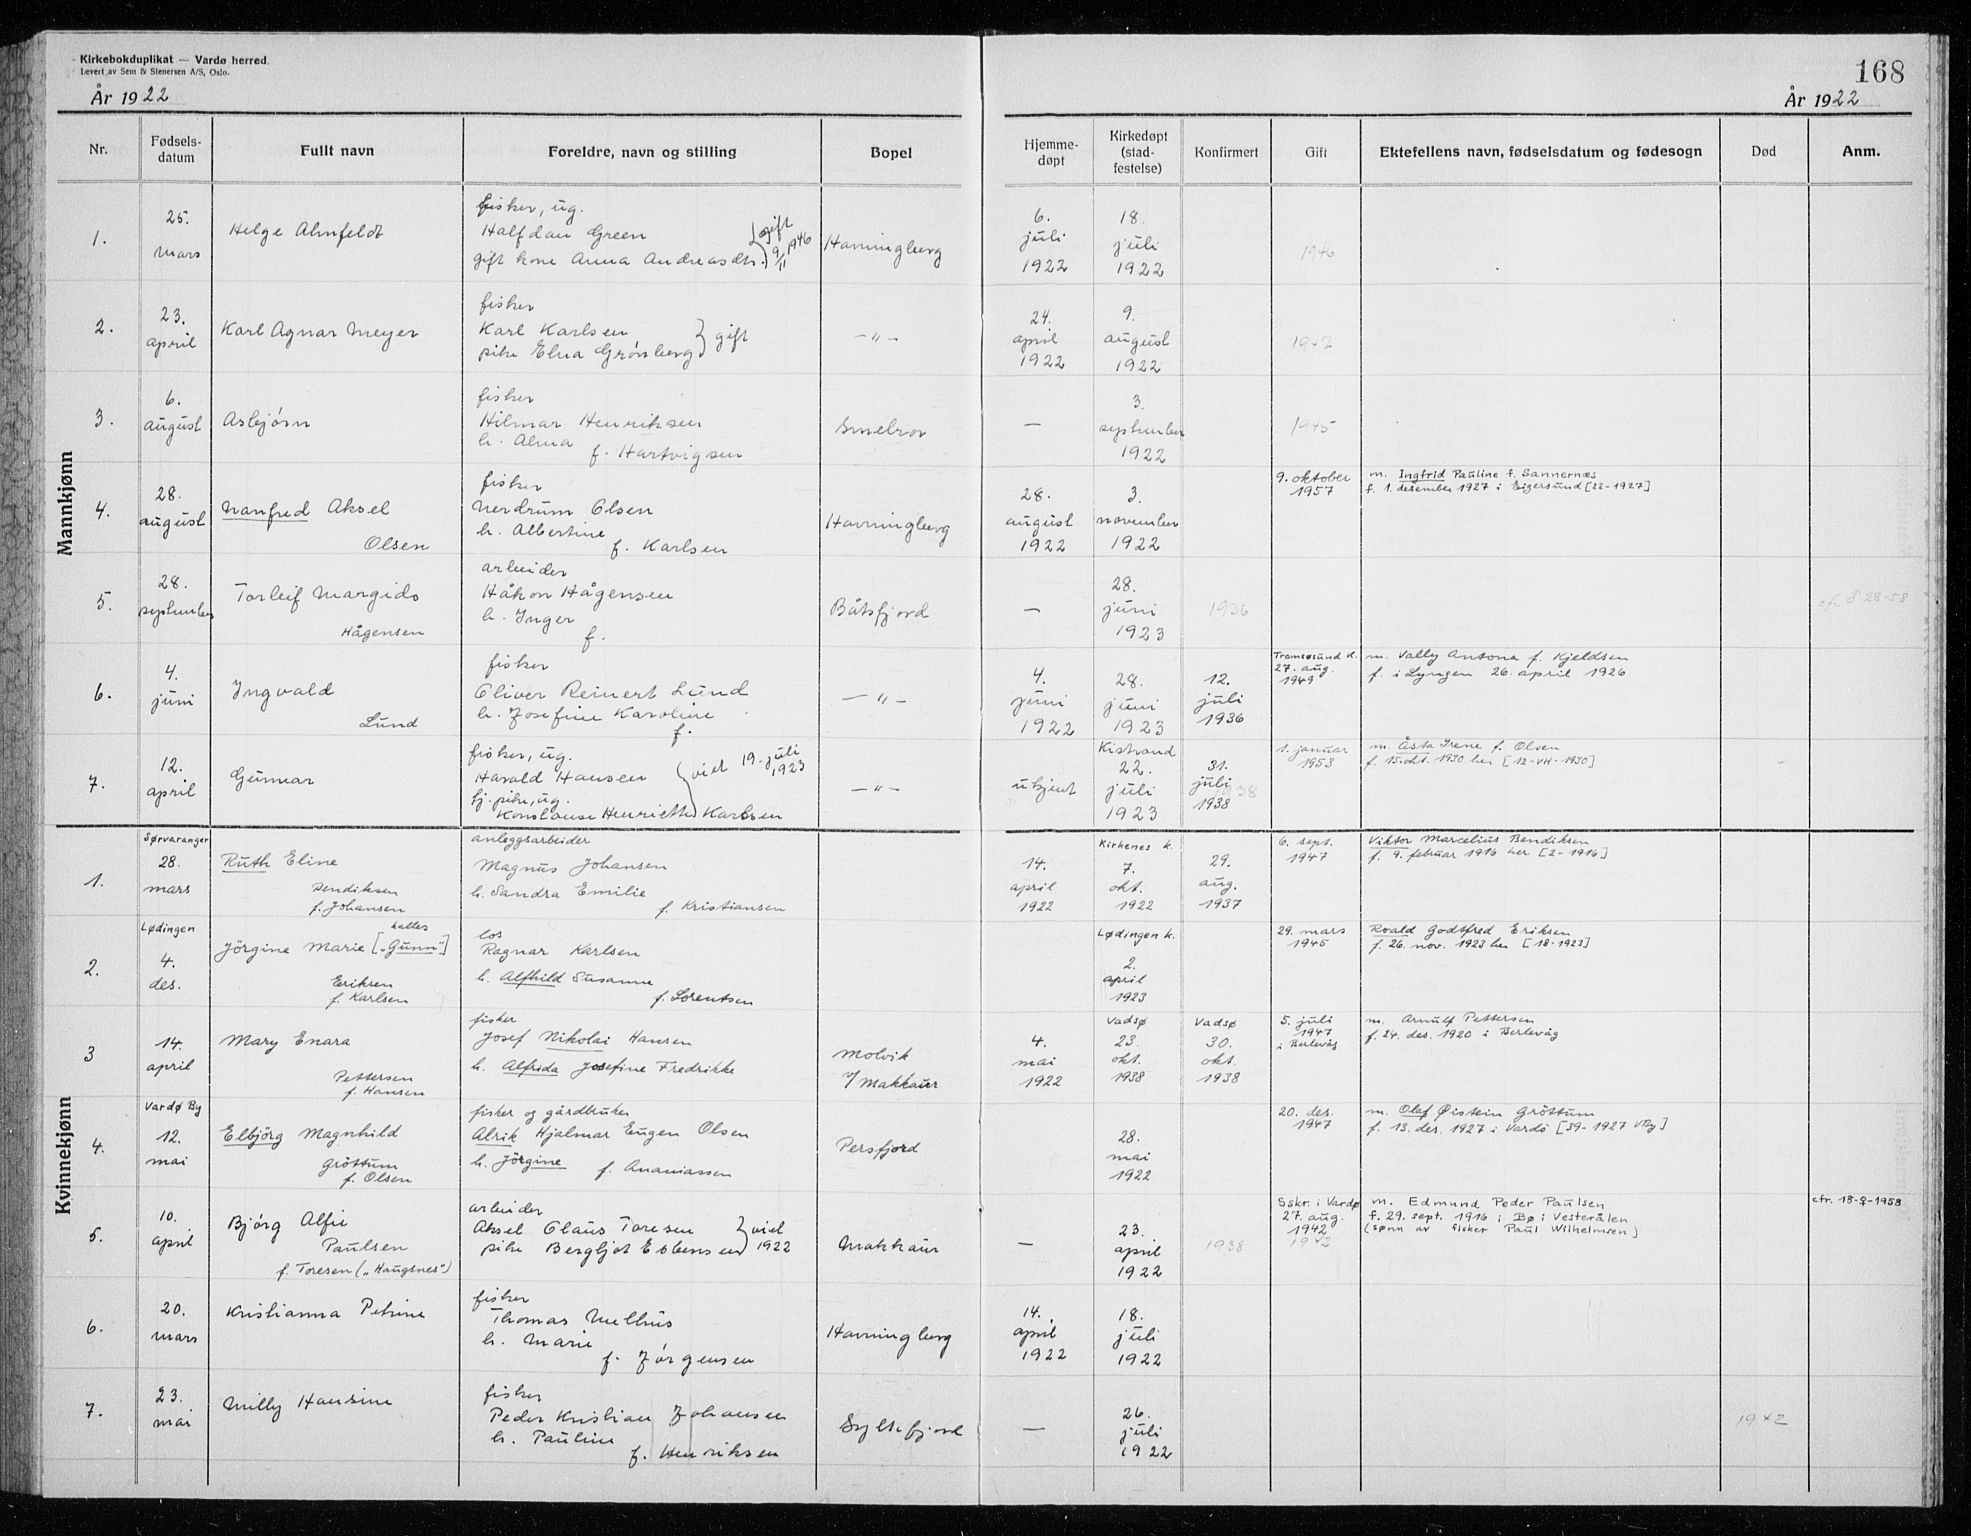 Kirkebokduplikat — Vardø herred.
Levert av Sem & Stenersen A/S, Oslo.
168
År 1922
År 1922
Nr.
Fødsels-
datum
Fullt navn
Foreldre, navn og stilling
Bopel
Hjemme-
døpt
Kirkedøpt
(stad-
festelse)
Konfirmert
Gift
Ektefellens navn, fødselsdatum og fødesogn
Død
Anm.
Mannkjønn
1.
25.
mars
Helge Almfeldt
fisker, ug.
Halfdan Green
gift kone Anna Andreasdtr.
gift
9/11 1946
Havningberg
6.
juli
1922
18.
juli
1922
1946
2.
23.
april
Karl Agnar Meyer
fisker
Karl Karlsen
pike Elna Grønberg
gift
—"—
24.
april
1922
9.
august
1922
1947
3.
6.
august
Asbjørn
fisker
Hilmar Henriksen
h. Alma
f. Hartvigsen
Smelror
—
3.
september
1922
1945
4.
28.
august
Manfred Aksel
Olsen
fisker
Nerdrum Olsen
h. Albertine
f. Karlsen
Havningberg
28.
august
1922
3.
november
1922
9. oktober
1957
m. Ingfrid Pauline f. Sannernæs
f. 1. desember 1927 i Eigersund [22-1927]
5.
28.
september
Torleif Margido
Hågensen
arbeider
Håkon Hågensen
h. Inger
f.
Båtsfjord
—
28.
juni
1923
1936
cfr. 8 28-58
6.
4.
juni
Ingvald
Lund
fisker
Oliver Reinert Lund
h. Josefine Karoline
f.
—"—
4.
juni
1922
28.
juni
1923
12.
juli
1936
Tromsøsund K.
27. aug.
1949
m. Vally Antona f. Kjeldsen
f. i Lyngen 26. april 1926
7.
12.
april
Gunnar
fisker, ug.
Harald Hansen
tj. pike, ug.
Konstanse Henriette Karlsen
viet 19. juli
1923
—"—
ukjent
Kistrand
22.
juli
1923
31.
juli
1938
1938
1. januar
1953
m. Åsta Irene f. Olsen
f. 15. okt. 1930 her [12-VH-1930]
Kvinnekjønn
1.
Sørvaranger
28.
mars
Ruth Eline
Bendiksen
f. Johansen
anleggsarbeider
Magnus Johansen
h. Sandra Emilie
f. Kristiansen
14.
april
1922
Kirkenes k.
7.
okt.
1922
29.
aug.
1937
6. sept.
1947
Viktor Marcelius Bendiksen
f. 9. februar 1916 her [2-1916]
2.
Lødingen
4.
des.
kalles
Jörgine Marie ["Gunn"]
Eriksen
f. Karlsen
los
Ragnar Karlsen
h. Alfhild Susanne
f. Lorentsen
Lødingen k.
2.
april
1923
29. mars
1945
Roald Godtfred Eriksen
f. 26. nov. 1923 her [18-1923]
3
14.
april
Mary Enara
Pettersen
f. Hansen
fisker
Josef Nikolai Hansen
h. Alfrida Josefine Fredrikke
Molvik
/ Makkaur
4.
mai
1922
Vadsø
23.
okt.
1938
Vadsø
30.
okt.
1938
5. juli
1947
i Berlevåg
m. Arnulf Pettersen
f. 24. des. 1920 i Berlevåg
4.
Vardø By
12.
mai
Elbjörg Magnhild
Gröttum
f. Olsen
fisker og gårdbruker
Alrik Hjalmar Eugen Olsen
h. Jörgine f. Ananiassen
Persfjord
28.
mai
1922
20. des.
1947
m. Olaf Øistein Gröttum
f. 13. des. 1927 i Vardö [39-1927 VBy]
5.
10.
april
Bjørg Alfie
Paulsen
f. Toresen ("Haugsnes")
arbeider
Aksel Claus Toresen
pike Bergljot Ebbensen
viet
1922
Makkaur
—
23.
april
1922
1938
Sskr. i Vardø
27. aug.
1942
1942
m. Edmund Peder Paulsen
f. 29. sept. 1916 i Bø i Vesterålen
(sønn av fisker Paul Wilhelmsen)
cfr. 18-9-1958
6.
20.
mars
Kristianna Petrine
fisker
Thomas Melhus
h. Marie
f. Jørgensen
Havningberg
14.
april
1922
18.
juli
1922
7.
23.
mai
Milly Hansine
fisker
Peder Kristian Johansen
h. Pauline
f. Henriksen
Syltefjord
—
26.
juli
1922
1942